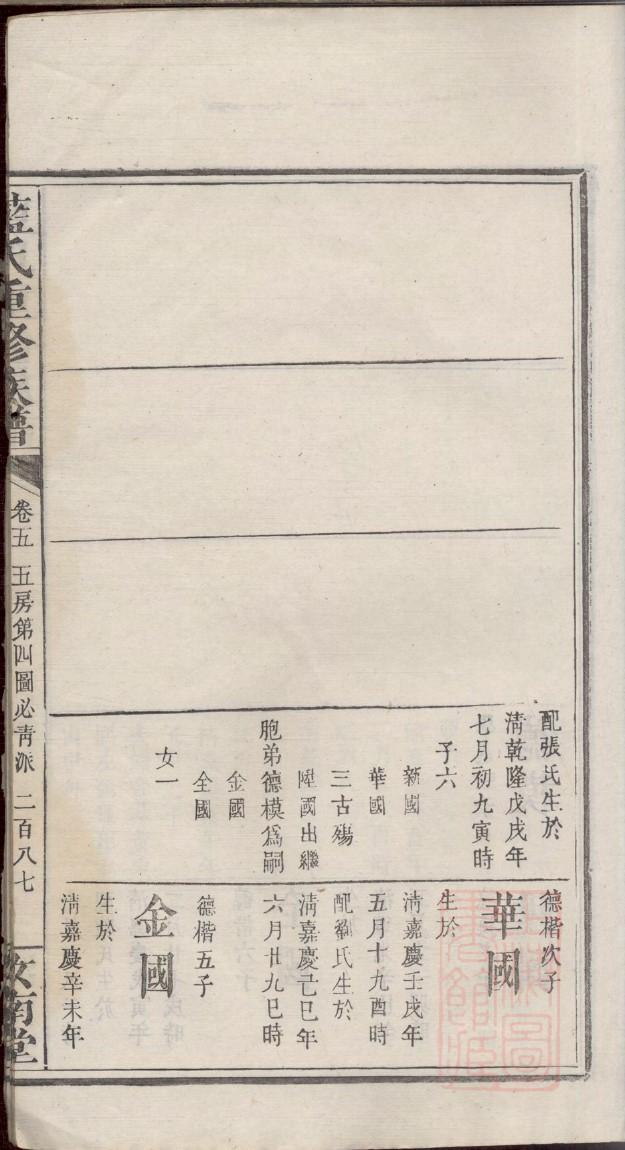 配張氏生於
淸乾隆戊戌年
七月初九寅時
子六
新國
華國
三古殤
陞國出繼
胞弟德模爲嗣
金國
全國
女一
德楷次子
華國
生於
淸嘉慶壬戌年
五月十九酉時
配劉氏生於
淸嘉慶己巳年
六月廿九巳時
德楷五子
金國
生於
淸嘉慶辛未年
藍氏重修族譜
卷五 五房第四圖必靑派 二百八七
汝南堂